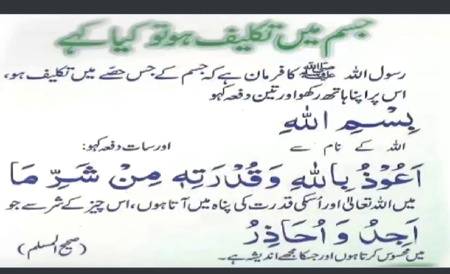 جسم میں تکلیف ہو تو کیا کہے
رسول اللہ ﷺ کا فرمان ہے کہ جسم کے جس حصّے میں تکلیف ہو،
اس پر اپنا ہاتھ رکھو اور تین دفعہ کہو
بِسْمِ اللهِ
اللہ کے نام سے اور سات دفعہ کہو:
اَعُوْذُ بِاللهِ وَقُدْرَتِهٖ مِنْ شَرِّ مَا
میں اللہ تعالیٰ اور اُسکی قدرت کی پناہ میں آتا ہوں، اس چیز کے شر سے جو
اَجِدُ وَ اُحَاذِرُ
میں محسوس کرتا ہوں اور جسکا مجھے اندیشہ ہے۔ (صحیح المسلم)